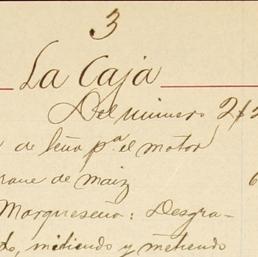 3
La Caja
Del número 2/2
de leña pª. el motor
de maiz 6
Marqueseña: Desgra-
do, midiendo y metiendo